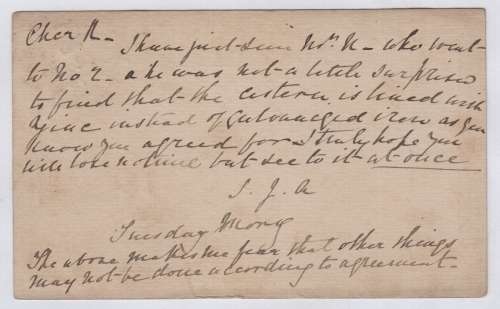 Cher R - I have just seen Mr. N - who went
to No 2 - & he was not a little surprised
to find that the cistern is lined with
Zinc instead of Galvanized iron as you
know you agreed for I truly hope you
will lose no time but see to it at once
S. J. A
Tuesday Morng
The above makes me fear that other things
may not be done according to agreement -